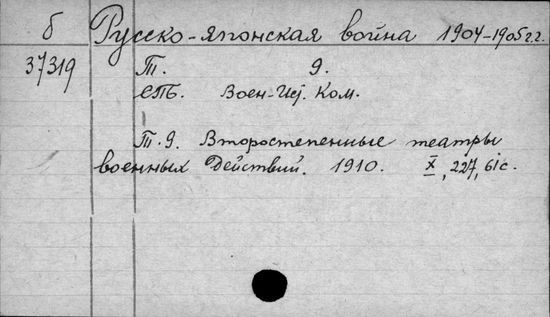 б Русско-японская война 1904-1905 г.г.
37319 Т. 9.
СПБ. Воен-Ист. Ком.
Т. 9. Второстепенные театры
военных Действий. 1910. X, 227, 61 с.